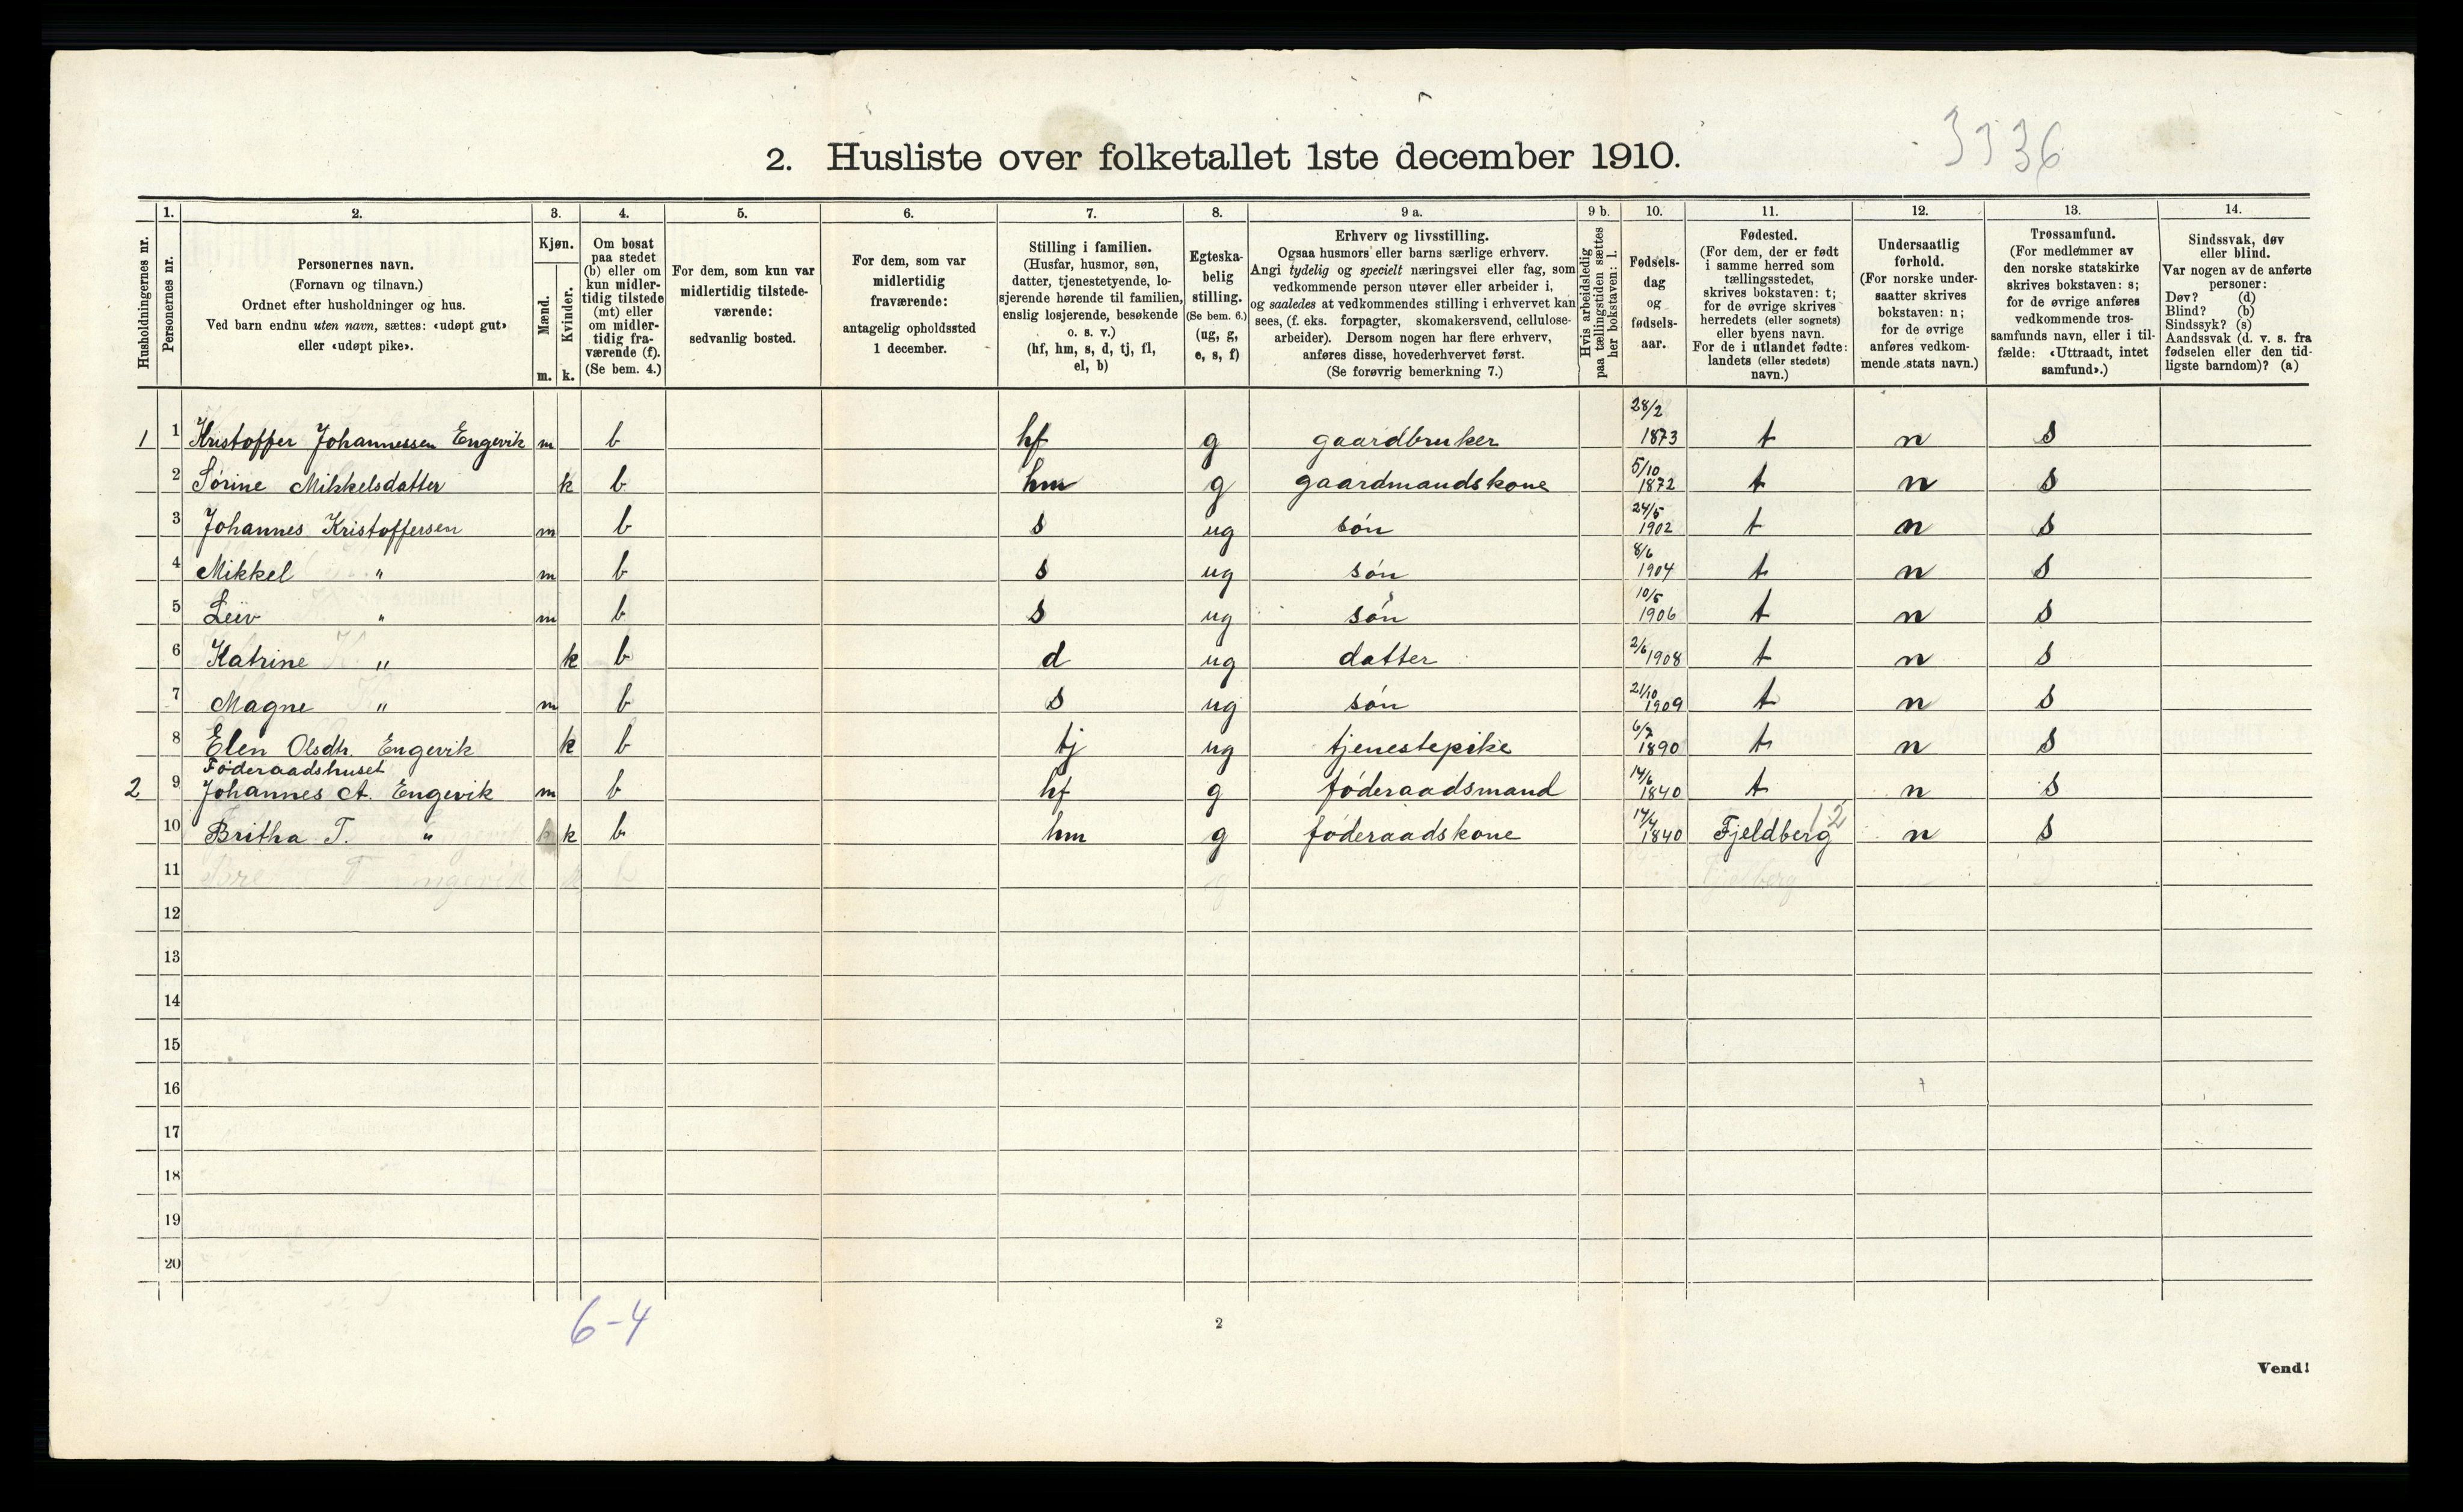 3336
2. Husliste over folketallet 1ste december 1910.
Husholdningernes nr.
1.
Personernes nr.
2.
Personernes navn.
(Fornavn og tilnavn.)
Ordnet efter husholdninger og hus.
Ved barn endnu uten navn, sættes: «udøpt gut»
eller «udøpt pike».
3.
Kjøn.
Mænd.
Kvinder.
m. k.
4.
Om bosat
paa stedet
(b) eller om
kun midler-
tidig tilstede
(mt) eller
om midler-
tidig fra-
værende (f).
(Se bem. 4.)
5.
For dem, som kun var
midlertidig tilstede-
værende:
sedvanlig bosted.
6.
For dem, som var
midlertidig
fraværende:
antagelig opholdssted
1 december.
7.
Stilling i familien.
(Husfar, husmor, søn,
datter, tjenestetyende, lo-
sjerende hørende til familien,
enslig losjerende, besøkende
o. s. v.)
(hf, hm, s, d, tj, fl,
el, b)
8.
Egteska-
belig
stilling.
(Se bem. 6.)
(ug, g,
e, s, f)
9 a.
Erhverv og livsstilling.
Ogsaa husmors eller barns særlige erhverv.
Angi tydelig og specielt næringsvei eller fag, som
vedkommende person utøver eller arbeider i,
og saaledes at vedkommendes stilling i erhvervet kan
sees, (f. eks. forpagter, skomakersvend, cellulose-
arbeider). Dersom nogen har flere erhverv,
anføres disse, hovederhvervet først.
(Se forøvrig bemerkning 7.)
9 b.
Hvis arbeidsledig
paa tællingstiden sættes
her bokstaven: l.
10.
Fødsels-
dag
og
fødsels-
aar.
11.
Fødested.
(For dem, der er født
i samme herred som
tællingsstedet,
skrives bokstaven: t;
for de øvrige skrives
herredets (eller sognets)
eller byens navn.
For de i utlandet fødte:
landets (eller stedets)
navn.)
12.
Undersaatlig
forhold.
(For norske under-
saatter skrives
bokstaven: n;
for de øvrige
anføres vedkom-
mende stats navn.)
13.
Trossamfund.
(For medlemmer av
den norske statskirke
skrives bokstaven: s;
for de øvrige anføres
vedkommende tros-
samfunds navn, eller i til-
fælde: «Uttraadt, intet
samfund».)
14.
Sindssvak, døv
eller blind.
Var nogen av de anførte
personer:
Døv? (d)
Blind? (b)
Sindssyk? (s)
Aandssvak (d. v. s. fra
fødselen eller den tid-
ligste barndom)? (a)
1 1 Kristoffer Johannessen Engevik m b hf g gaardbruker 28/2 1873 t n s
2 Sørine Mikkelsdatter k b hm g gaardmandskone 5/10 1872 t n s
3 Johannes Kristoffersen m b s ug søn 24/5 1902 t n s
4 Mikkel " m b s ug søn 8/6 1904 t n s
5 Leiv " m b s ug søn 10/5 1906 t n s
6 Katrine " k b d ug datter 2/6 1908 t n s
7 Magne " m b s ug søn 21/10 1909 t n s
8 Elen Olsdtr. Engevik k b tj ug tjenestepike 6/2 1890 t n s
Føderaadshuset
2 9 Johannes A. Engevik m b hf g føderaadsmand 14/6 1840 t n s
10 Britha T. " k b hm g føderaadskone 14/4 1840 Fjeldberg 12 n s
11
12
13
14
15
16
17
18
19
20
6-4
2
Vend!